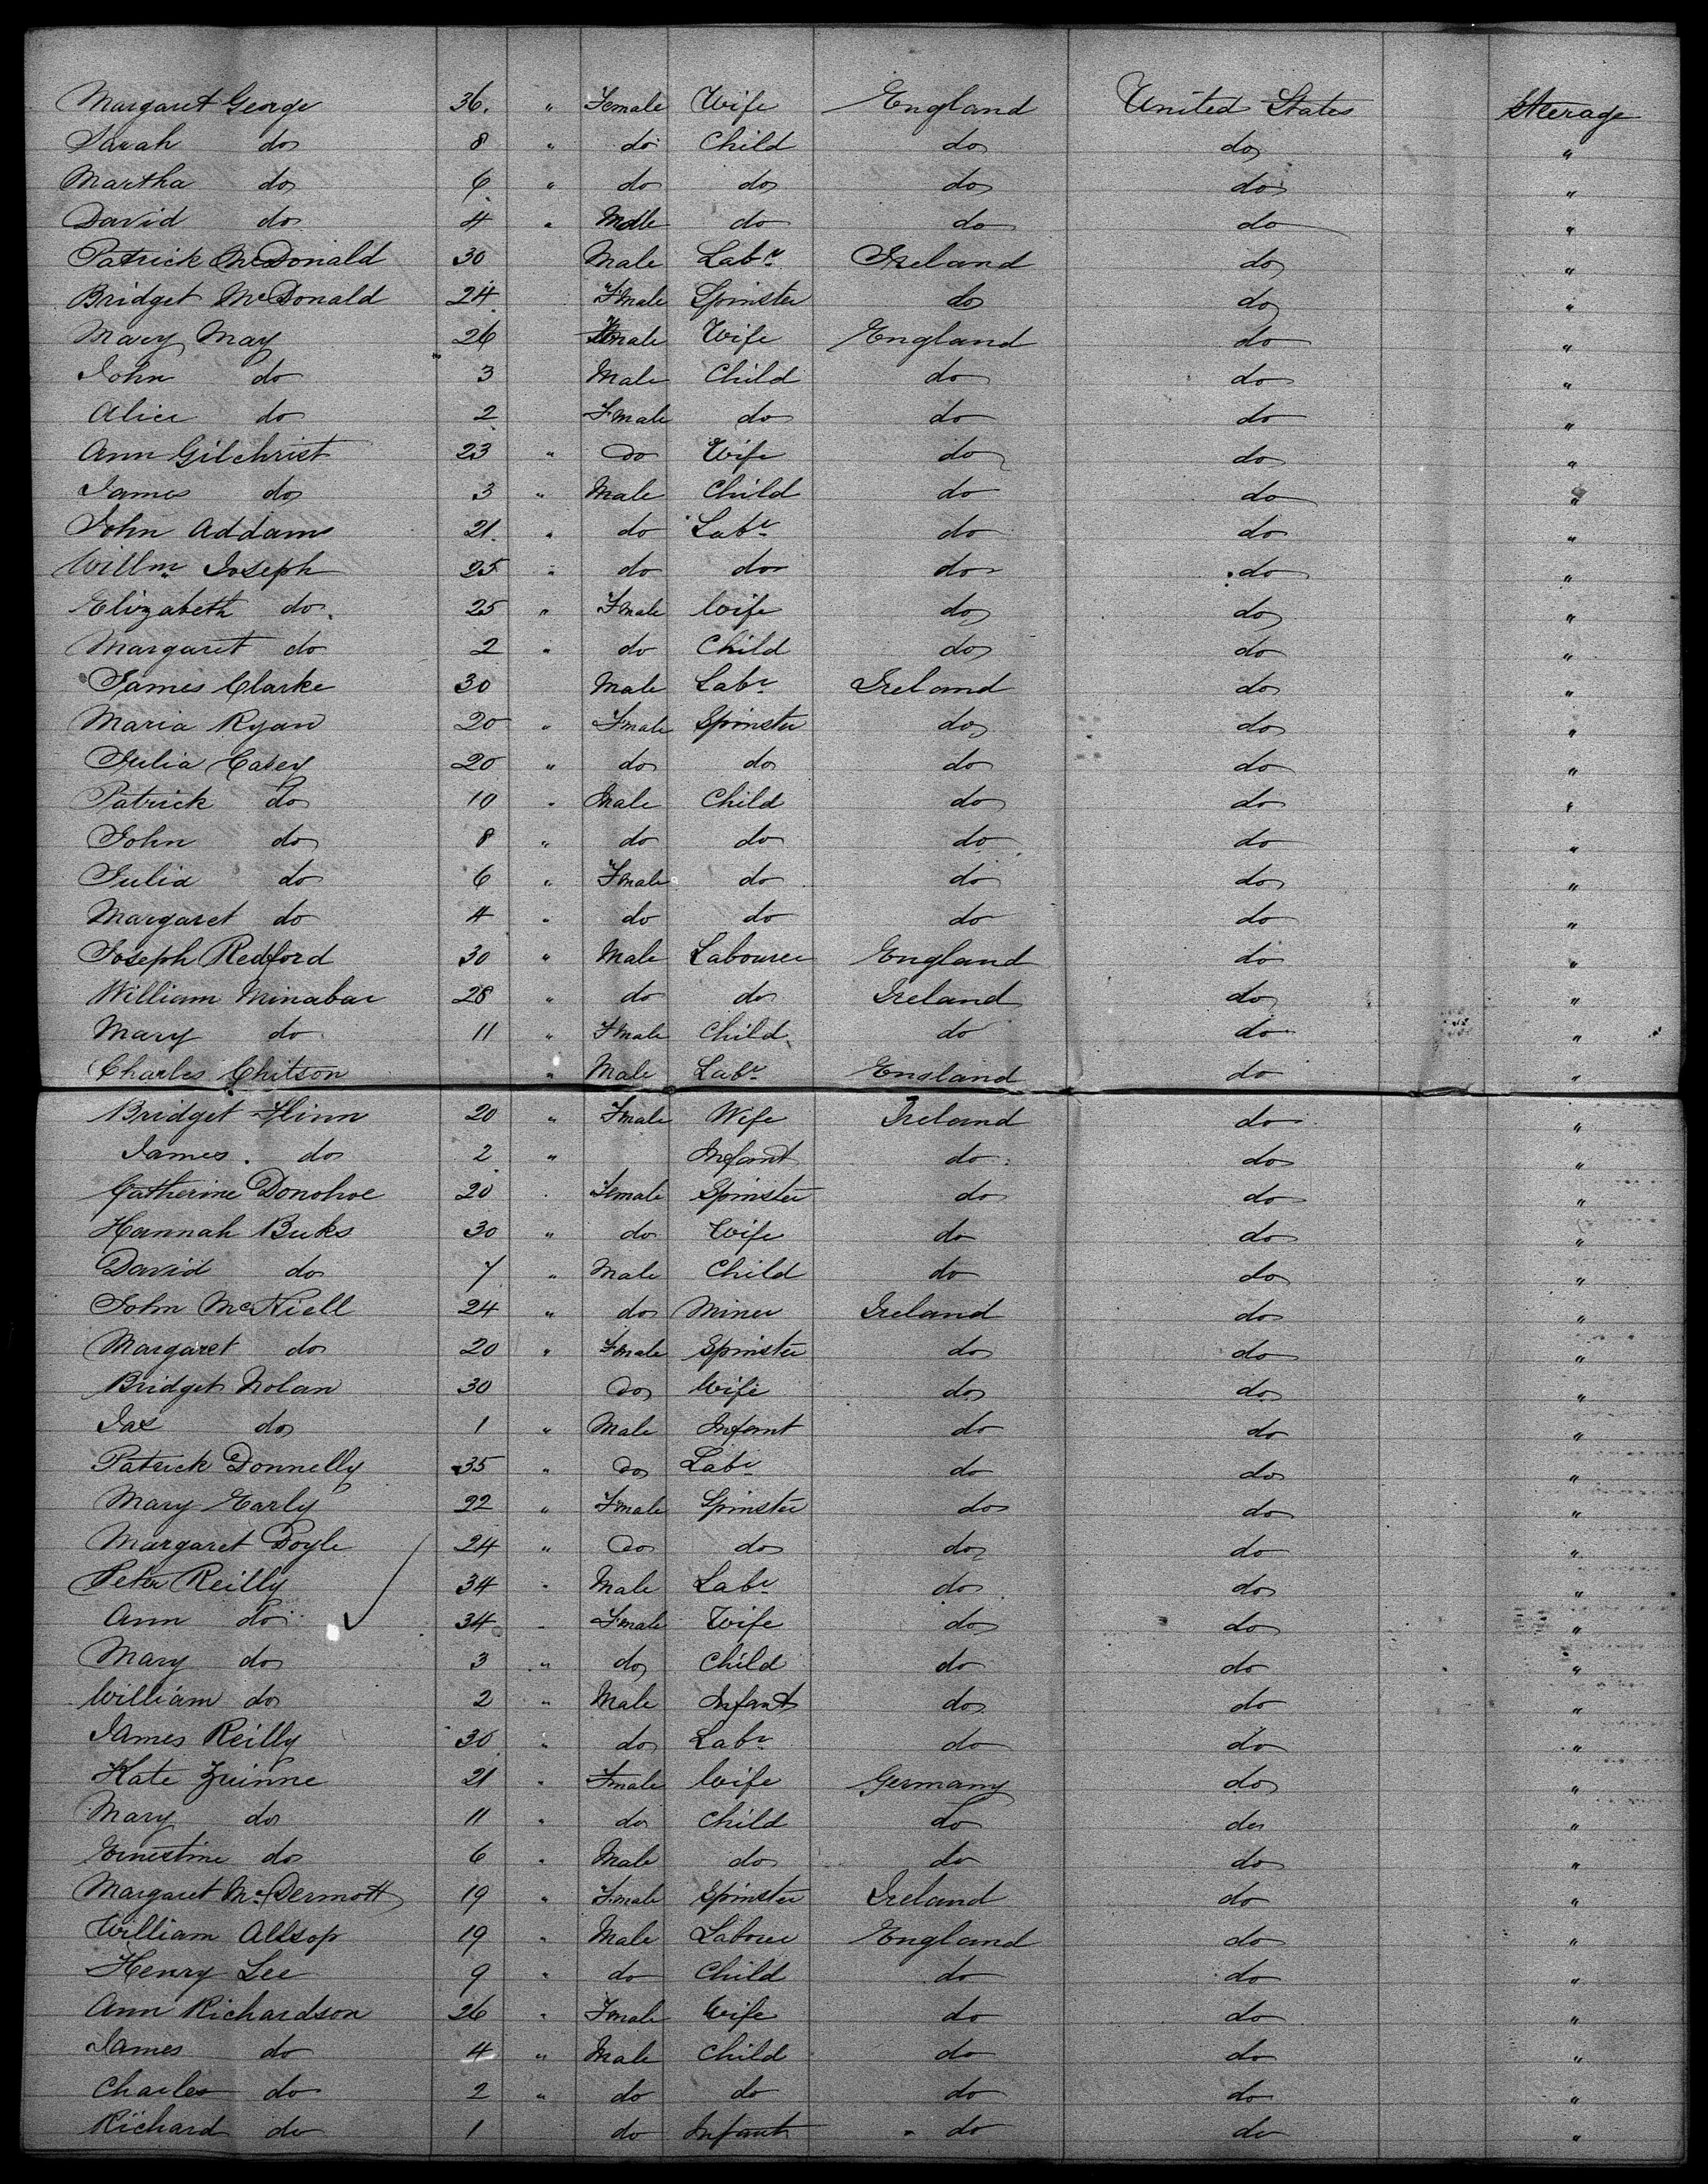 Margaret George 36. " Female Wife England United States Steerage
Sarah do 8 " do Child do do "
Martha do 6 " do do do do "
David do 4 " Male do do do "
Patrick McDonald 30 Male Labr Ireland do "
Bridget McDonald 24 Fmale Spinster do do "
Mary May 26 Fmale Wife England do "
John do 3 Male Child do do "
Alice do 2 Fmale do do do "
Ann Gilchrist 23 " do Wife do do "
James do 3 " Male Child do do "
John Addams 21. " do Labr do do "
Willm Joseph 25 " do do do do "
Elizabeth do 25 " Fmale Wife do do "
Margaret do 2 " do Child do do "
James Clarke 30 Male Labr Ireland do "
Maria Ryan 20 " Fmale Spinster do do "
Julia Casey 20 " do do do do "
Patrick do 10 " Male Child do do "
John do 8 " do do do do "
Julia do 6 " Fmale do do do "
Margaret do 4 " do do do do "
Joseph Redford 30 " Male Labourer England do "
William Minabar 28 " do do Ireland do "
Mary do 11 " Fmale Child do do "
Charles Chitson " Male Labr England do "
Bridget Flinn 20 " Fmale Wife Ireland do "
James do 2 " Infant do do "
Catherine Donohoe 20 " Female Spinster do do "
Hannah Buks 30 " do Wife do do "
David do 7 " Male Child do do "
John McNiell 24 " do Miner Ireland do "
Margaret do 20 " Fmale Spinster do do "
Bridget Nolan 30 do Wife do do "
Jas do 1 " Male Infant do do "
Patrick Donnelly 35 " do Labr do do "
Mary Early 22 " Fmale Spinster do do "
Margaret Doyle 24 " do do do do "
Peter Reilly 34 " Male Labr do do "
Ann do 34 " Fmale Wife do do "
Mary do 3 " do Child do do "
William do 2 " Male Infant do do "
James Reilly 30 " do Labr do do "
Kate Zuinne 21 " Fmale Wife Germany do "
Mary do 11 " do Child do do "
Ernestine do 6 " Male do do do "
Margaret McDermott 19 " Fmale Spinster Ireland do "
William Allsop 19 " Male Laborer England do "
Henry Lee 9 " do Child do do "
Ann Richardson 26 " Fmale Wife do do "
James do 4 " Male Child do do "
Charles do 2 " do do do do "
Richard do 1 do Infant do do "